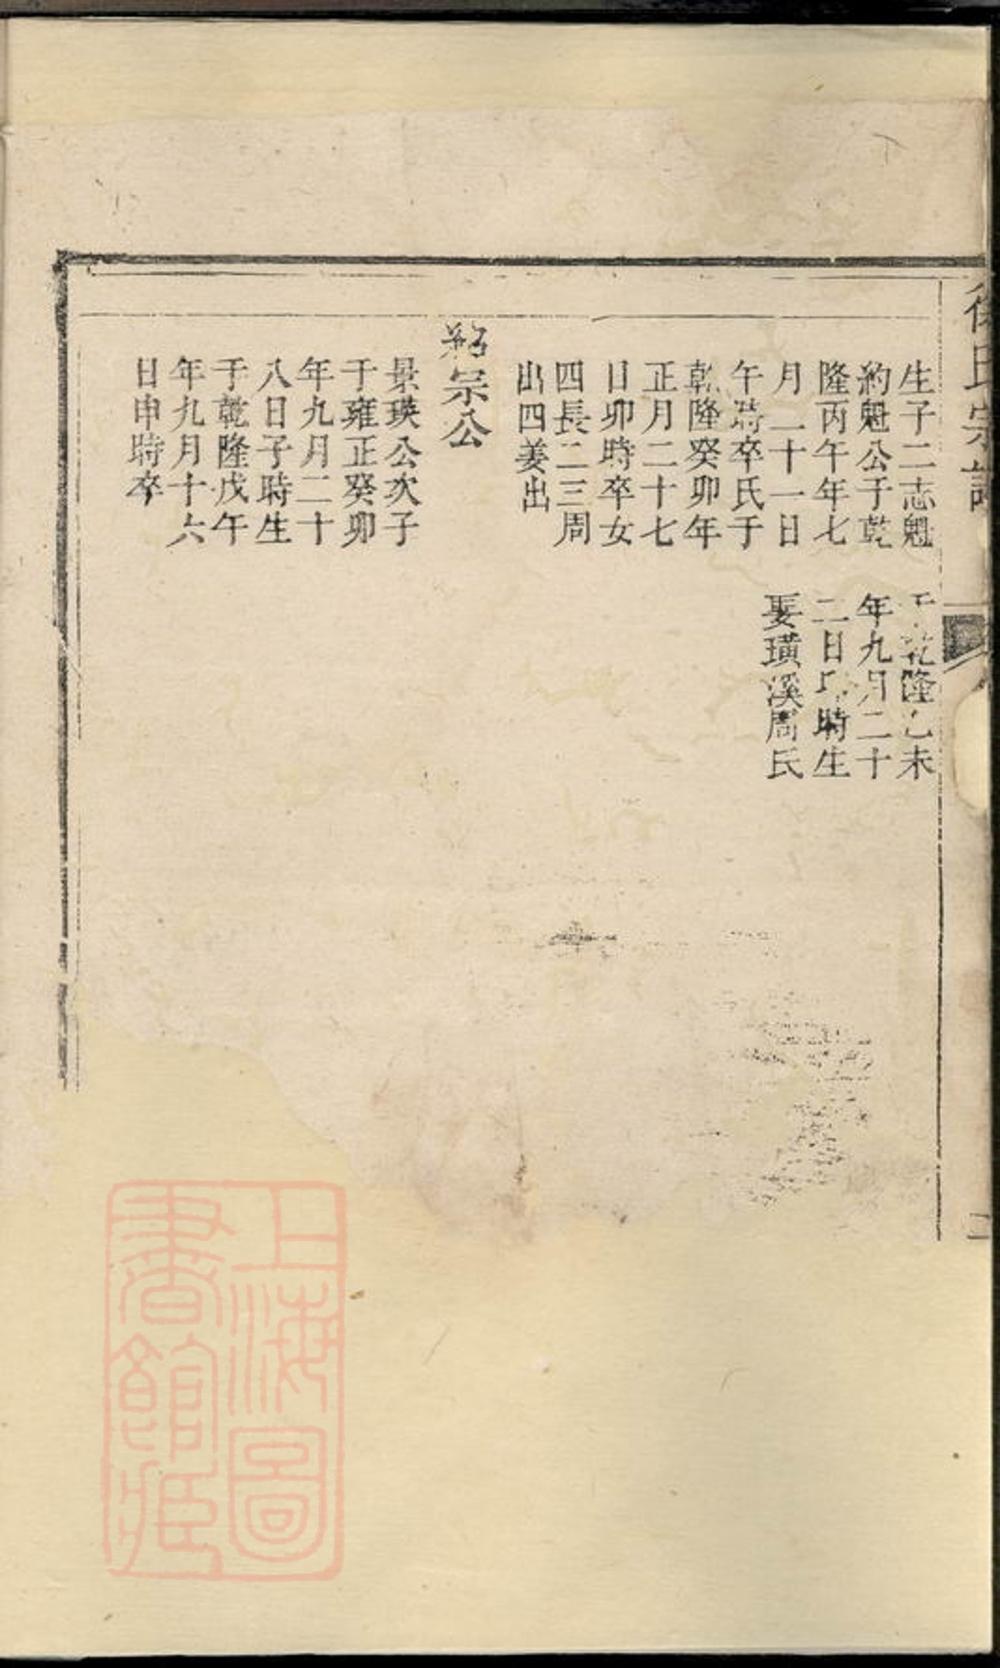 徐氏宗譜
生子二志魁
約魁公于乾
隆丙午年七
月二十一日
午時卒氏于
乾隆癸卯年
正月二十七
日卯時卒女
四長二三周
出四姜出
于乾隆乙未
年九月二十
二日 時生
娶璜溪周氏
宗公
景瑛公次子
于雍正癸卯
年九月二十
八日子時生
于乾隆戊午
年九月十六
日申時卒
二
上海圖
書館藏